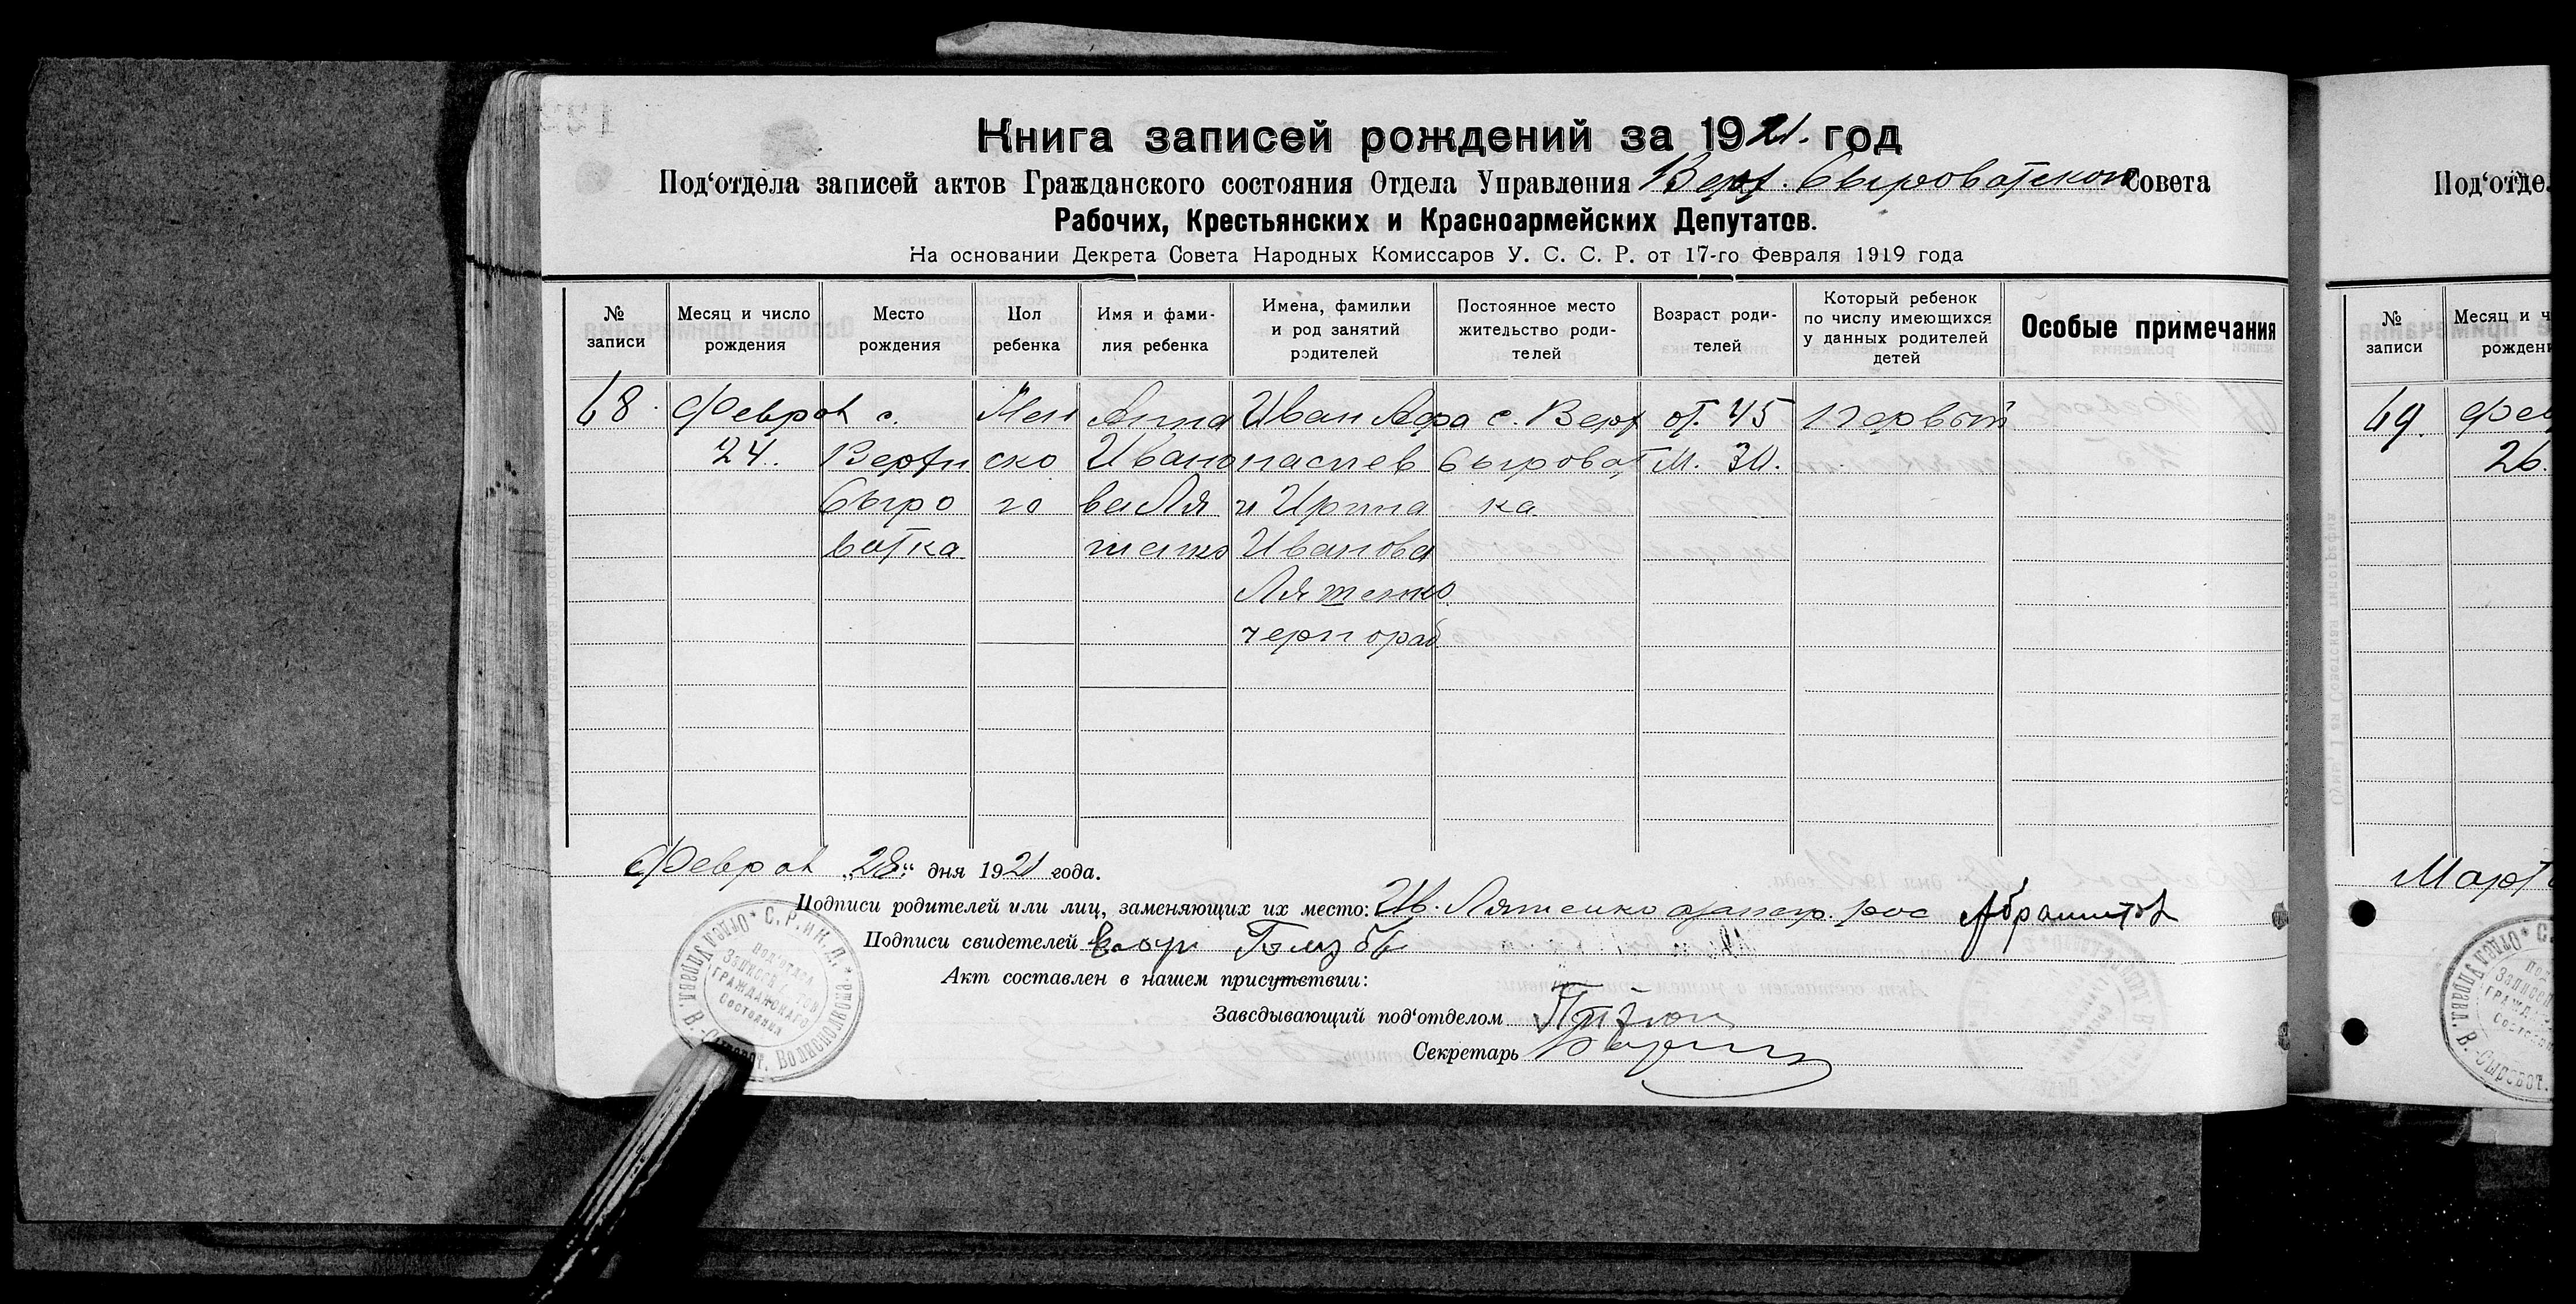 Книга записей рождений за 1921. год
Под‘отдела записей актов Гражданского состояния Отдела Управления Верх. Сыроватском Совета
Рабочих, Крестьянских и Красноармейских Депутатов.
На основании Декрета Совета Народных Комиссаров У. С. С. Р. от 17-го Февраля 1919 года
№ записи
Месяц и число рождения
Место рождения
Пол ребенка
Имя и фами-
лия ребенка
Имена, фамилии
и род занятий
родителей
Постоянное место
жительство роди-
телей
Возраст роди-
телей
Который ребенок
по числу имеющихся
у данных родителей
детей
Особые примечания
68 Феврал с. Жен Анна Иван Афа с. Верх от. 45 первый
24. Верхн ско Ивано насиев Сыроват М. 30.
Сыро го ва Ля и Ирина ка
ватка шенко Иванова
Ляшенко
чернораб
Феврал „28“ дня 1921 года.
Подписи родителей или лиц, заменяющих их место: Ив. Ляшенко
Подписи свидетелей
Акт составлен в нашем присутствии:
Заведывающий под‘отделом
Секретарь
С. Р. и К. Д. * Отдел Управл. В.-Сыроват. Волисполкома *
Под‘отдел
Записей Актов
Гражданскаго
Состояния
Под‘отде
№ записи
Месяц и ч
рожден
69. Фев
26.
Март